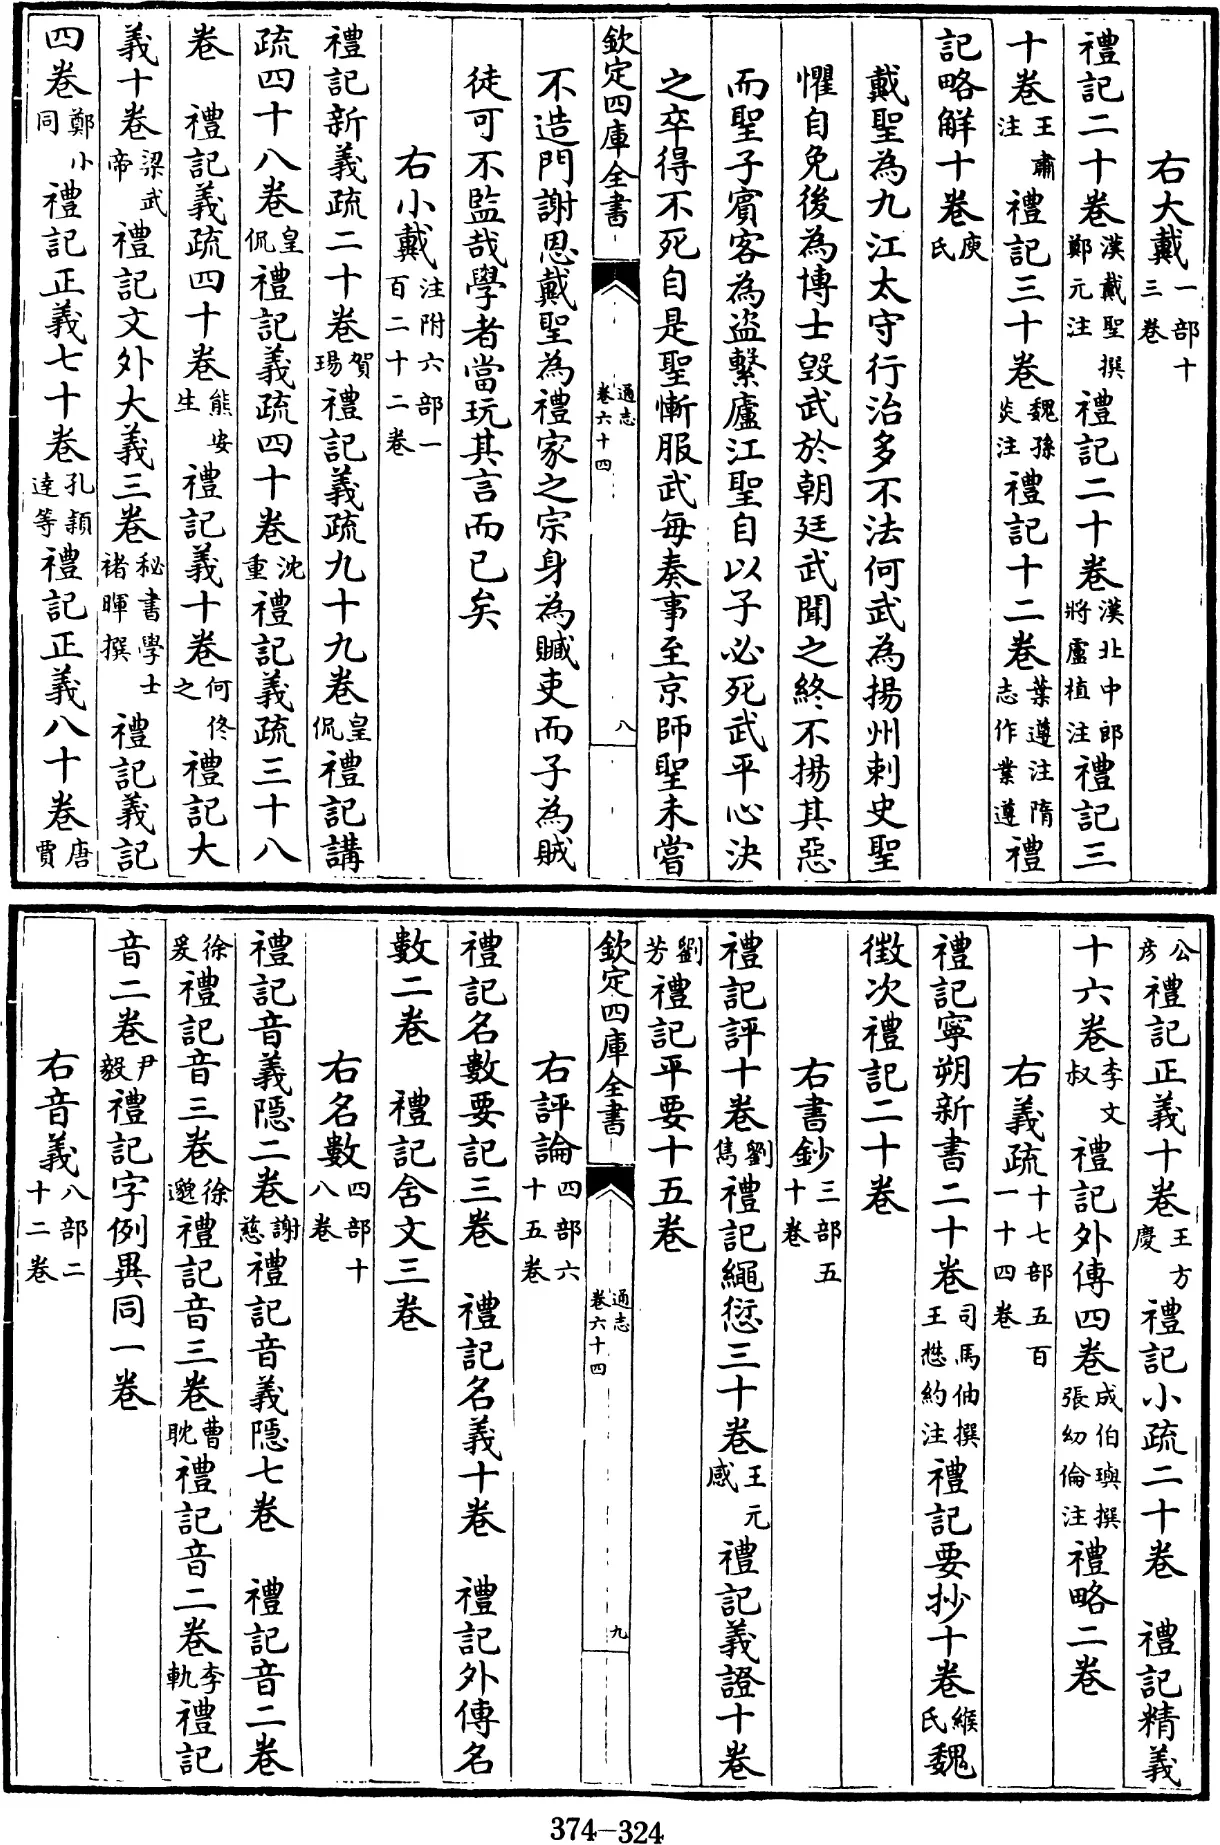 右大戴一部十三卷
禮記二十卷漢戴聖撰鄭元注禮記二十卷漢北中郎將盧植注禮記三
十卷王肅注禮記三十卷魏孫炎注禮記十二卷葉遵注隋志作業遵禮
記略解十卷庾氏
戴聖為九江太守行治多不法何武為揚州刺史聖
懼自免後為博士毁武於朝廷武聞之終不揚其惡
而聖子賓客為盜繫廬江聖自以子必死武平心決
之卒得不死自是聖慚服武每奏事至京師聖未嘗
欽定四庫全書 通志卷六十四 八
不造門謝恩戴聖為禮家之宗身為贓吏而子為賊
徒可不監哉學者當玩其言而已矣
右小戴注附六部一百二十二卷
禮記新義疏二十卷賀瑒禮記義疏九十九卷皇侃禮記講
疏四十八卷皇侃禮記義疏四十卷沈重禮記義疏三十八
卷 禮記義疏四十卷熊安生禮記義十卷何佟之禮記大
義十卷梁武帝禮記文外大義三卷秘書學士褚暉撰禮記義記
四卷鄭小同禮記正義七十卷孔頴達等禮記正義八十卷唐賈
公彦禮記正義十卷王方慶禮記小疏二十卷 禮記精義
十六卷李文叔禮記外傳四卷成伯璵撰張幼倫注禮略二卷
右義疏十七部五百一十四卷
禮記寧朔新書二十卷司馬伷撰王懋約注禮記要抄十卷緱氏魏
徵次禮記二十卷
右書鈔三部五十卷
禮記評十卷劉雋禮記繩愆三十卷王元感禮記義證十卷
劉芳禮記平要十五卷
欽定四庫全書 通志卷六十四 九
右評論四部六十五卷
禮記名數要記三卷 禮記名義十卷 禮記外傳名
數二卷 禮記含文三卷
右名數四部十八卷
禮記音義隠二卷謝慈禮記音義隠七卷 禮記音二卷
徐爰禮記音三卷徐邈禮記音三卷曹耽禮記音二卷李軌禮記
音二卷尹毅禮記字例異同一卷
右音義八部二十二卷
374-324